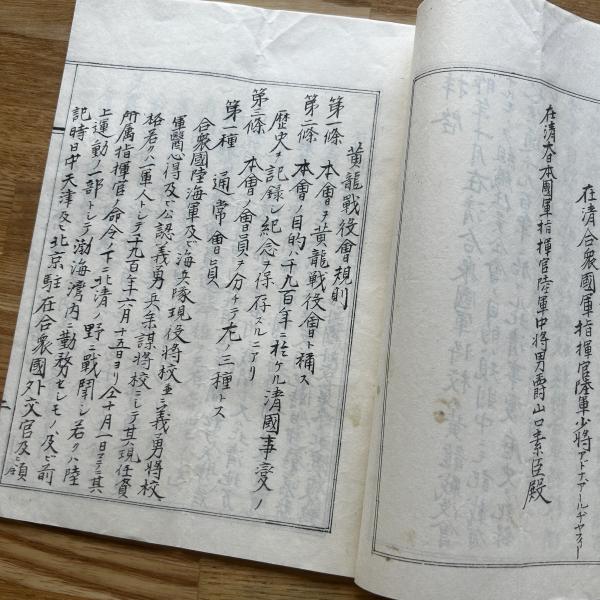 在清合衆國軍指揮官陸軍少將アドナアールチヤフィー
在清大日本國軍指揮官陸軍中將男爵山口素臣殿
黄龍戰役會規則
第一條 本會ヲ黄龍戰役會ト稱ス
第二條 本會ノ目的ハ千九百年ニ於ケル清國事變ノ
歴史ヲ記録シ紀念ヲ保存スルニアリ
第三條 本會ノ會員ヲ分チテ左ノ三種トス
第一種 通常會員
合衆國陸海軍及ビ海兵隊現役將校並ニ義勇將校
軍醫心得及ビ公認義勇兵參謀將校ニシテ其現任資
格若クハ軍人トシテ千九百年六月十五日ヨリ仝十月一日マテ其
所属指揮官ノ命令ノ下ニ北清ノ野ニ戰鬪シ若クハ陸
上運動ノ一部トシテ渤海湾内ニ勤務セシモノ及ビ前
記時日中天津及ビ北京駐在合衆國外交官及ビ領